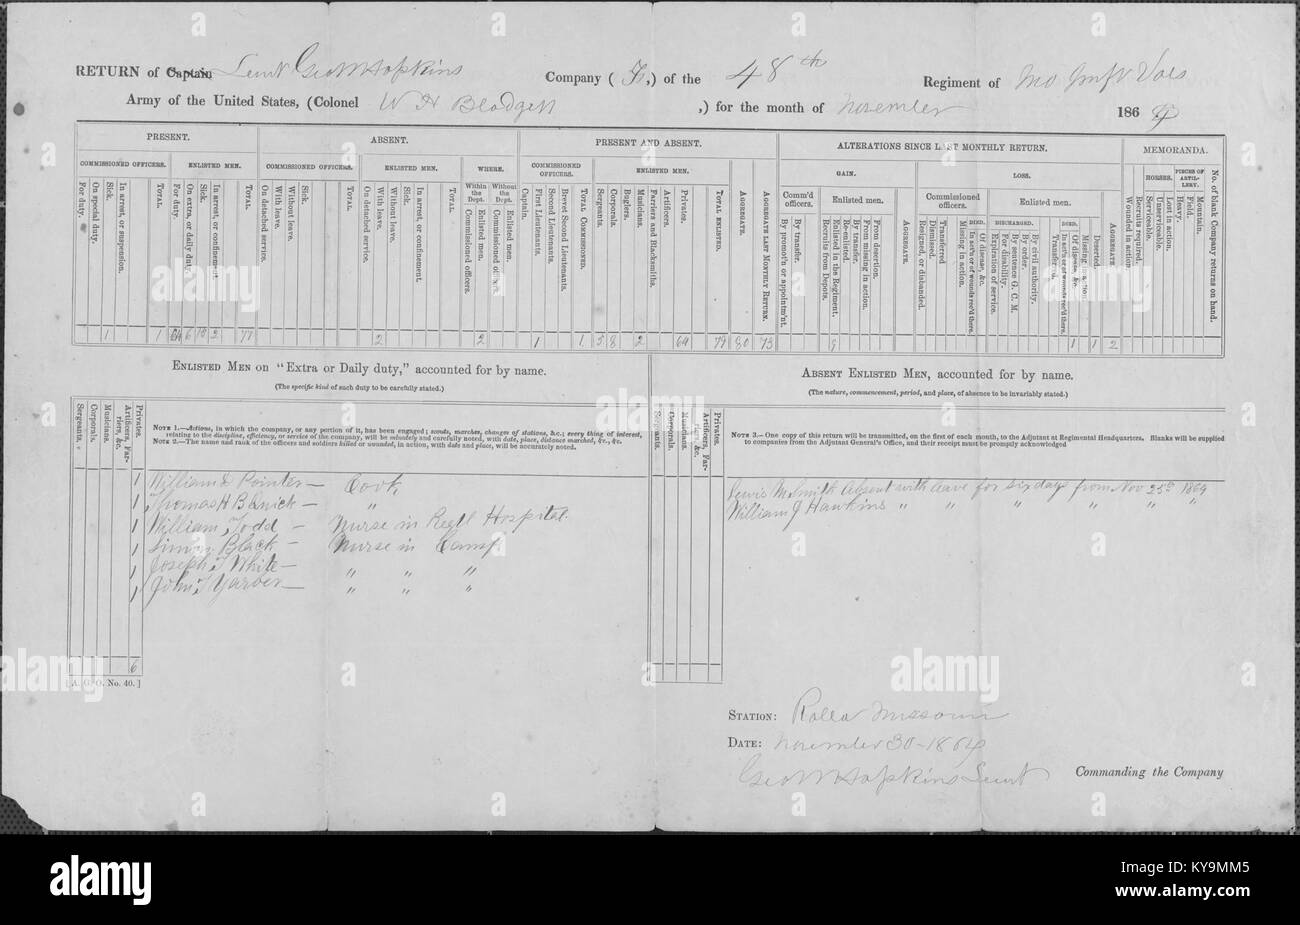 RETURN of Captain Lieut Geo W Hopkins Company ( F, ) of the 48th Regiment of Mo Inft Vols
Army of the United States, (Colonel W H Blodgett ,) for the month of November 1864
PRESENT. ABSENT. PRESENT AND ABSENT. ALTERATIONS SINCE LAST MONTHLY RETURN. MEMORANDA.
COMMISSIONED OFFICERS. ENLISTED MEN. COMMISSIONED OFFICERS. ENLISTED MEN. WHERE. COMMISSIONED OFFICERS. ENLISTED MEN. GAIN. LOSS. HORSES. PIECES OF ARTILLERY.
Within the Dept. Without the Dept. Comm'd officers. Enlisted men. Commissioned officers. Enlisted men.
DIED. DISCHARGED. DIED.
For duty.
On special duty.
Sick.
In arrest, or suspension.
TOTAL.
For duty.
On extra, or daily duty.
Sick.
In arrest, or confinement.
TOTAL.
On detached service.
With leave.
Without leave.
Sick.
TOTAL.
On detached service.
With leave.
Without leave.
Sick.
In arrest, or confinement.
TOTAL.
Commissioned officers.
Enlisted men.
Commissioned officers.
Enlisted men.
Captain.
First Lieutenants.
Second Lieutenants.
Brevet Second Lieutenants.
TOTAL COMMISSIONED.
Sergeants.
Corporals.
Buglers.
Musicians.
Farriers and Blacksmiths.
Artificers.
Privates.
TOTAL ENLISTED.
AGGREGATE.
AGGREGATE LAST MONTHLY RETURN.
By promot'n or appointm'nt.
By transfer.
Recruits from Depots.
Enlisted in the Regiment.
Re-enlisted.
By transfer.
From missing in action.
From desertion.
AGGREGATE.
Resigned, or disbanded.
Dismissed.
Transferred
Missing in action.
In act'n or of wounds rec'd there.
Of disease, &c.
Expiration of service.
For disability.
By sentence G. C. M.
By order.
By civil authority.
Transferred.
In act'n or of wounds rec'd there.
Of disease, &c.
Missing in action.
Deserted.
AGGREGATE.
Wounded in action.
Recruits required.
Serviceable.
Unserviceable.
Lost in action.
Heavy.
Field.
Mountain.
No. of blank Company returns on hand.
1 1 64 6 10 2 77 2 2 1 1 5 8 2 64 79 80 73 9 1 1 2
ENLISTED MEN on "Extra or Daily duty," accounted for by name.
(The specific kind of such duty to be carefully stated.)
ABSENT ENLISTED MEN, accounted for by name.
(The nature, commencement, period, and place, of absence to be invariably stated.)
Sergeants.
Corporals.
Musicians.
Artificers, Farriers, &c.
Privates.
NOTE 1.—Actions, in which the company, or any portion of it, has been engaged; scouts, marches, changes of stations, &c.; every thing of interest,
relating to the discipline, efficiency, or service of the company, will be minutely and carefully noted, with date, place, distance marched, &c., &c.
NOTE 2.—The name and rank of the officers and soldiers killed or wounded, in action, with date and place, will be accurately noted.
1 William D Pointer — Cook,
1 Thomas H Barnick — "
1 William, Todd — Nurse in Regtl Hospital.
1 Simon Black — Nurse in Camp
1 Joseph, T White — " " "
1 John, T Yarder — " " "
6
[A. G. O. No. 40.]
Sergeants.
Corporals.
Musicians.
Artificers, Farriers, &c.
Privates.
NOTE 3.—One copy of this return will be transmitted, on the first of each month, to the Adjutant at Regimental Headquarters. Blanks will be supplied
to companies from the Adjutant General's Office, and their receipt must be promptly acknowledged
Lewis M Smith Absent with leave for six days from Nov 25th 1864
William J Hawkins " " " " " "
STATION: Rolla Missouri
DATE: November 30 - 1864
Geo W Hopkins Lieut Commanding the Company
alamy
KY9MM5
www.alamy.com